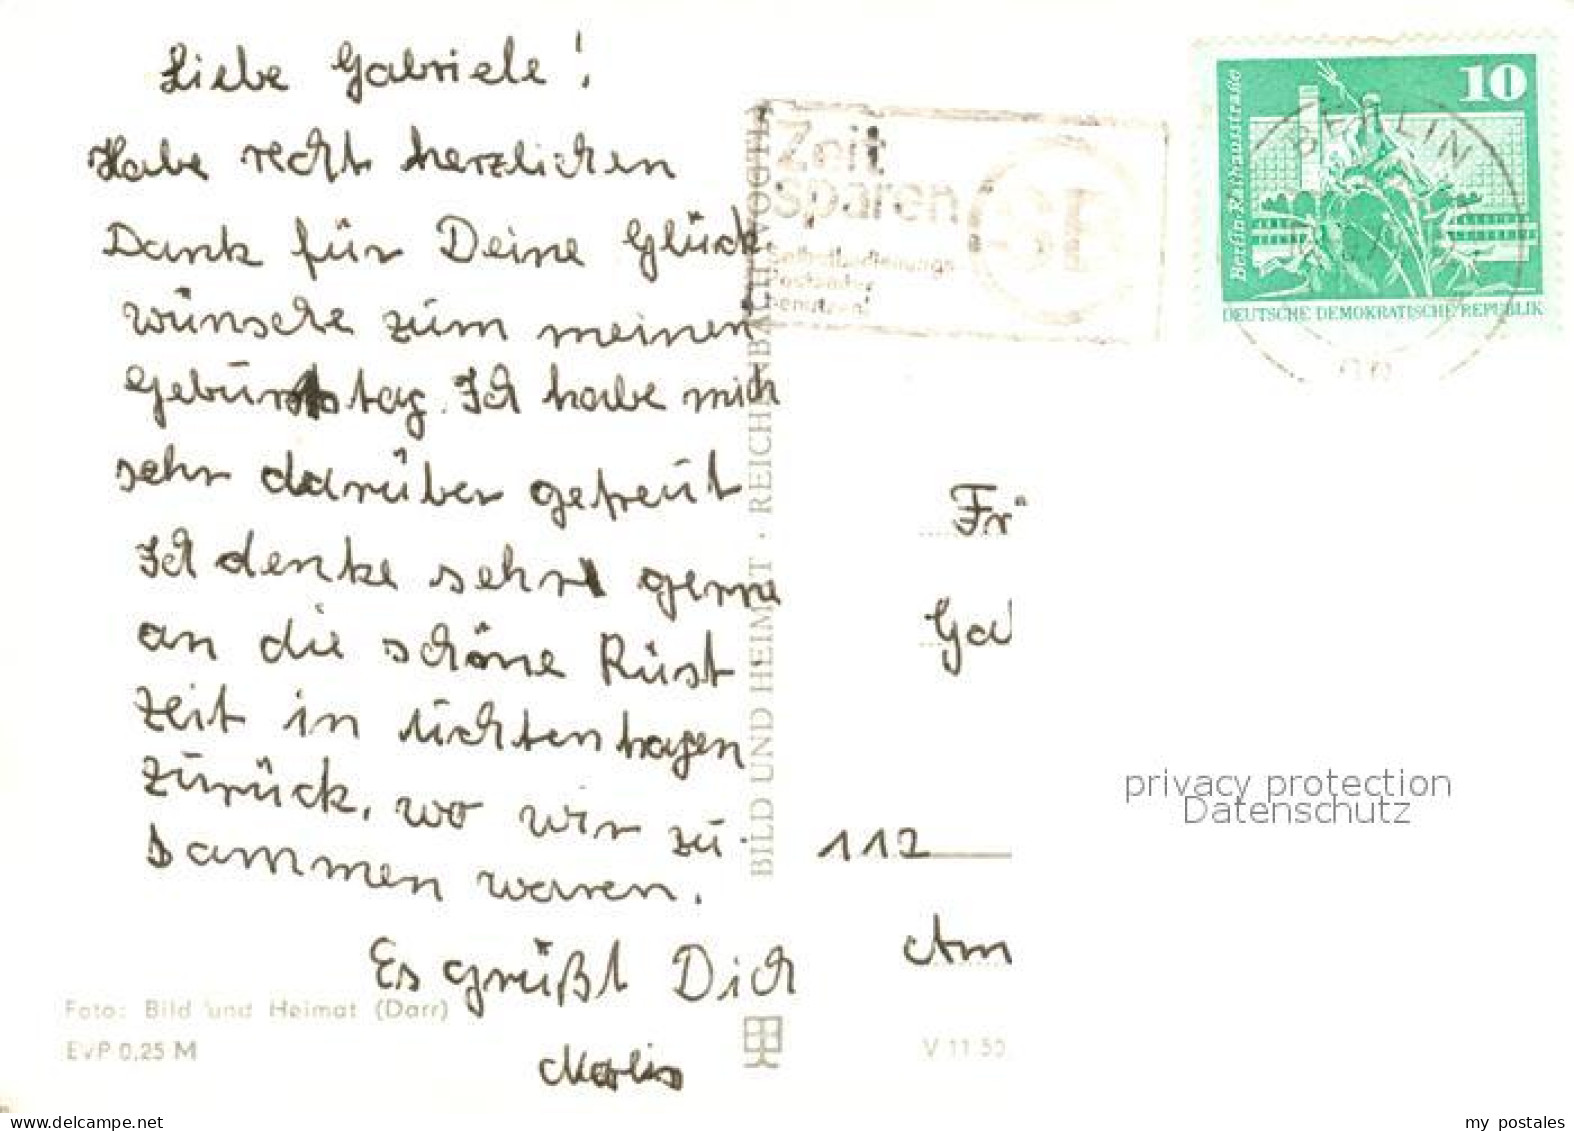 Liebe Gabriele!
Habe recht herzlichen
Dank für Deine Glück
wünsche zum meinen
Geburtstag. Ich habe mich
sehr darüber gefreut
Ich denke sehr gerne
an die schöne Rüst
zeit in Lichtenhagen
zurück, wo wir zu-
sammen waren.
Es grüßt Dich
Marlis
Foto: Bild und Heimat (Darr)
EVP 0,25 M
BILD UND HEIMAT · REICHENBACH (VOGTL)
V 11 50
Zeit
sparen
Selbstbedienungs
Postämter
benutzen!
BERLIN
10
Berlin-Rathausstraße
DEUTSCHE DEMOKRATISCHE REPUBLIK
Fr
Ga
112
Am
privacy protection
Datenschutz
www.delcampe.net
my_postales